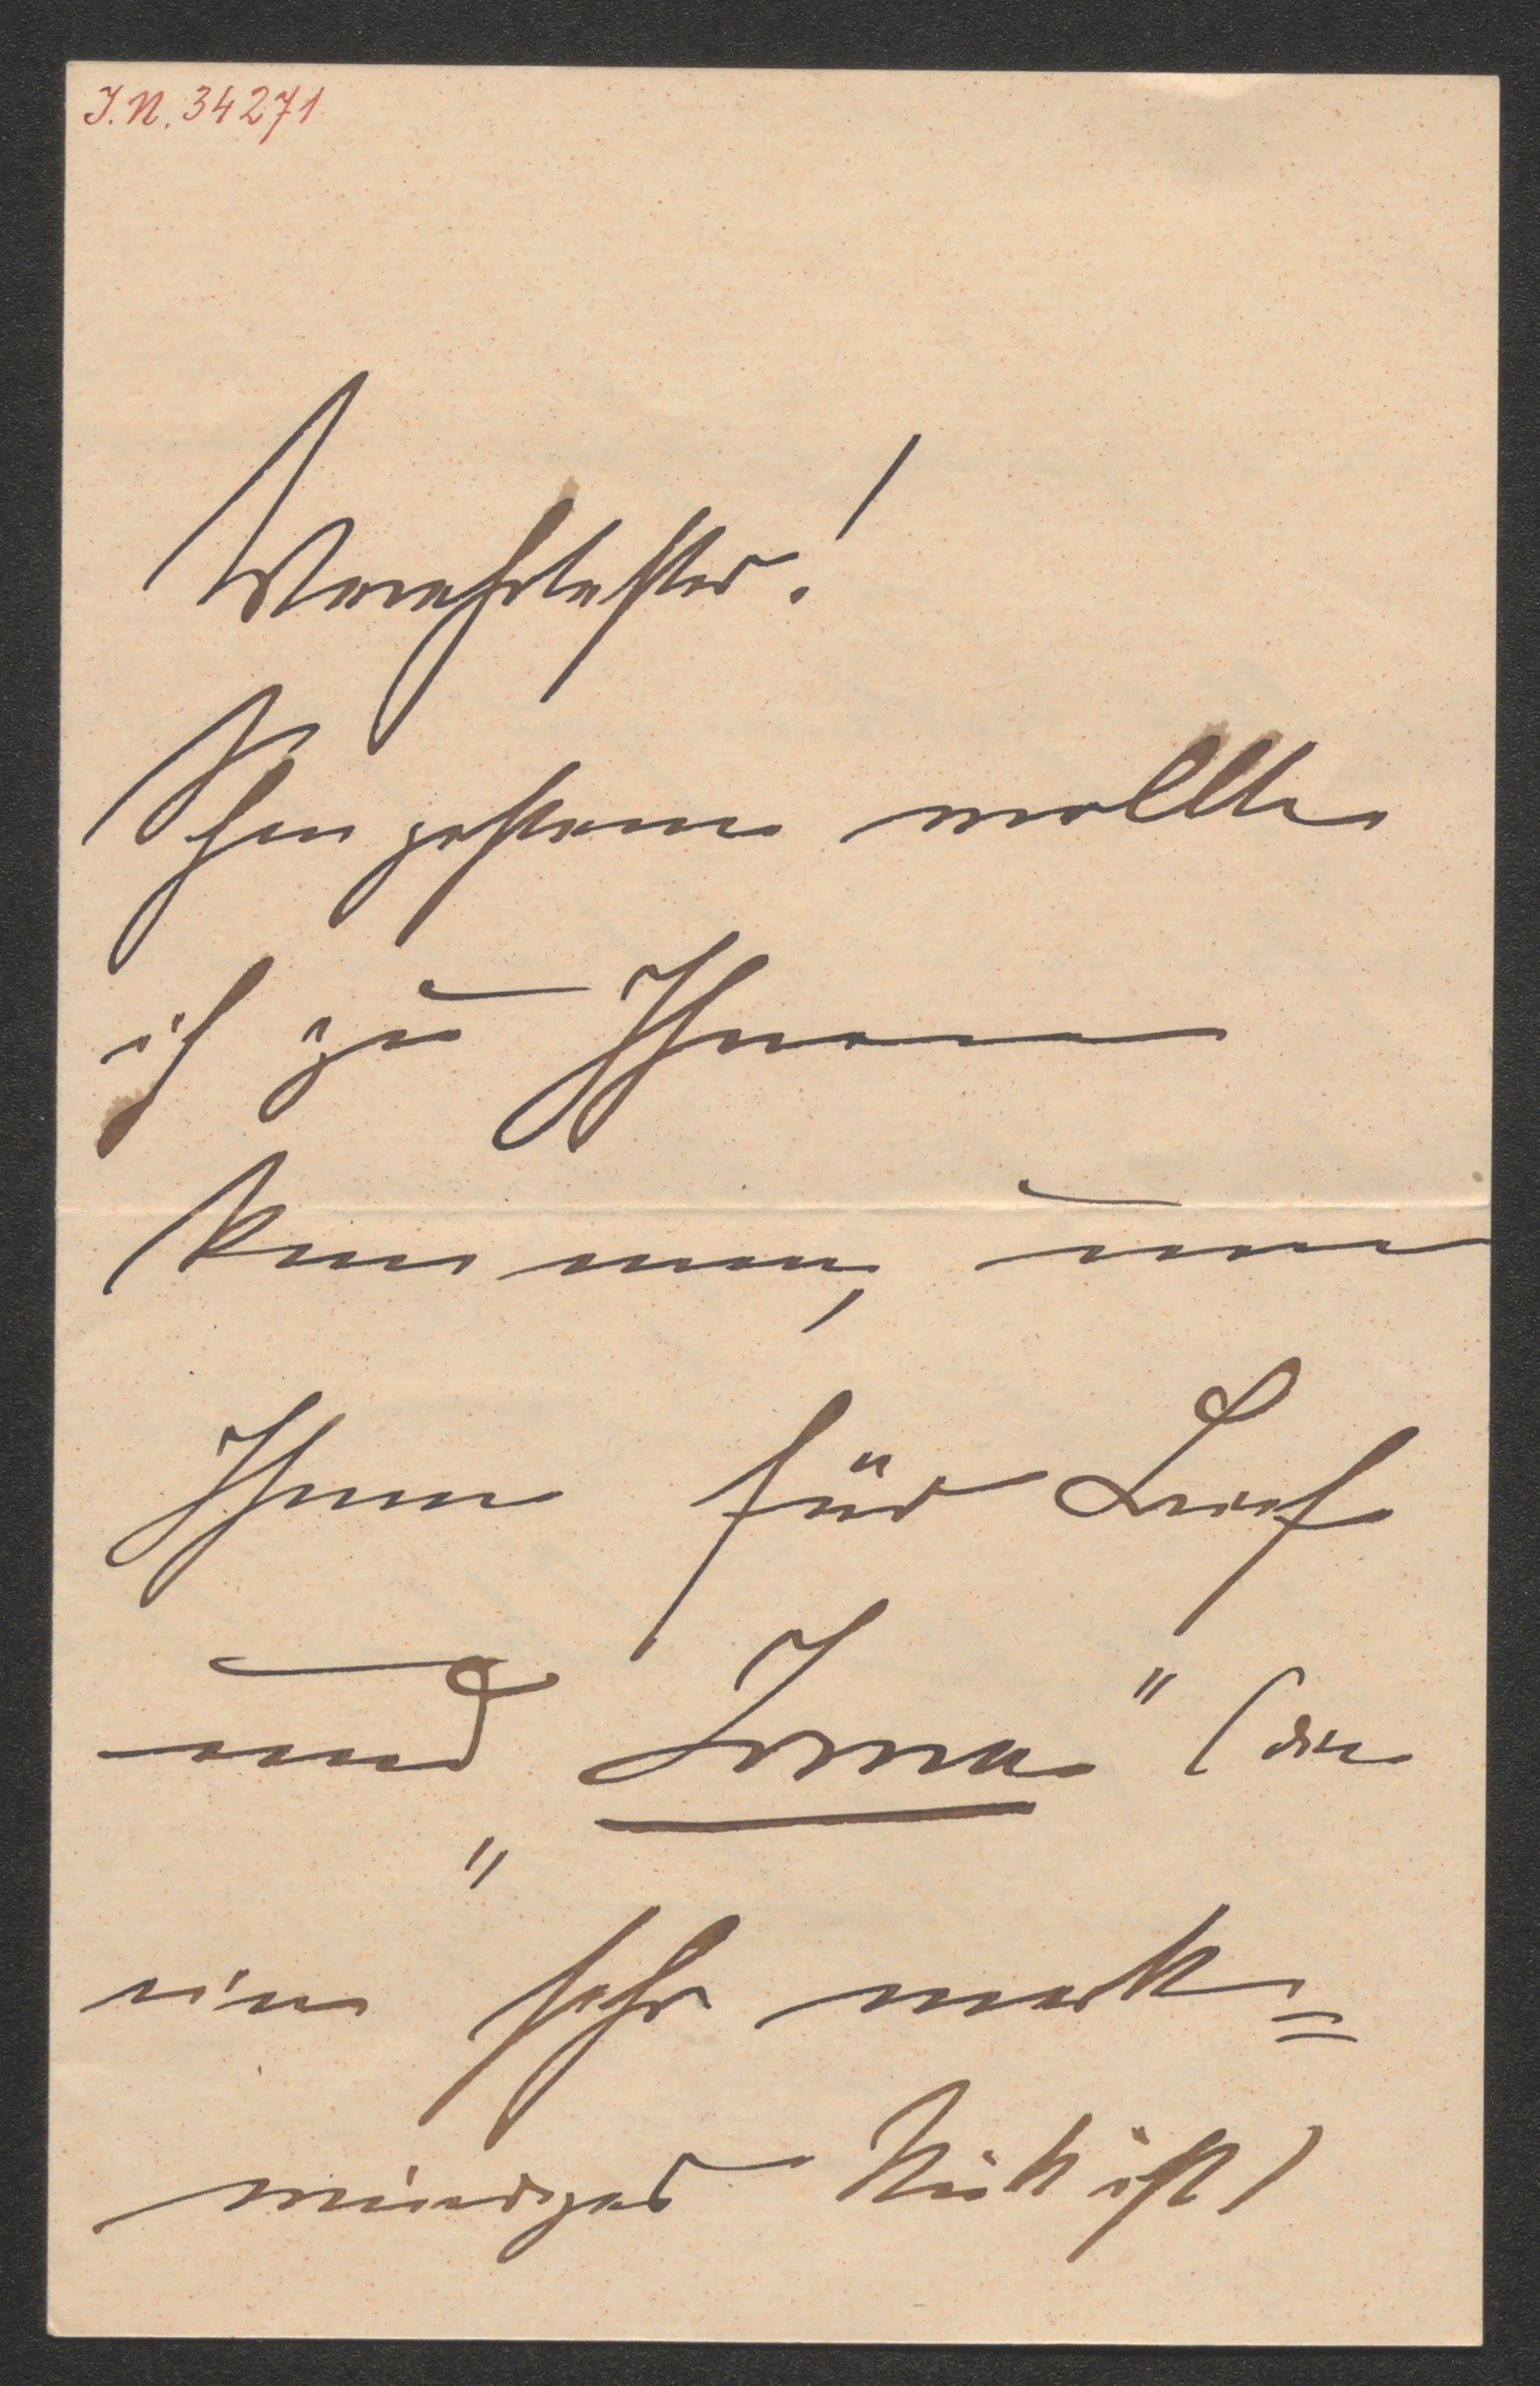 I.N. 34271
Verehrtester!
Schon gestern wollte
ich zu Ihnen
kommen, um
Ihnen für Brief
und „Irma" (die
ein sehr merk=
würdges Stück ist)